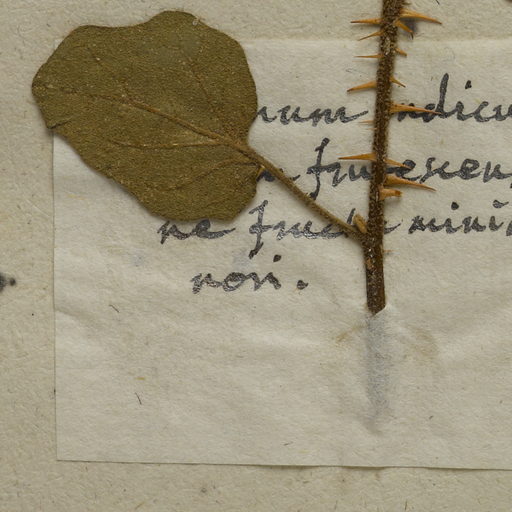 num indicu
frutescens
ne fructu mini
nori.